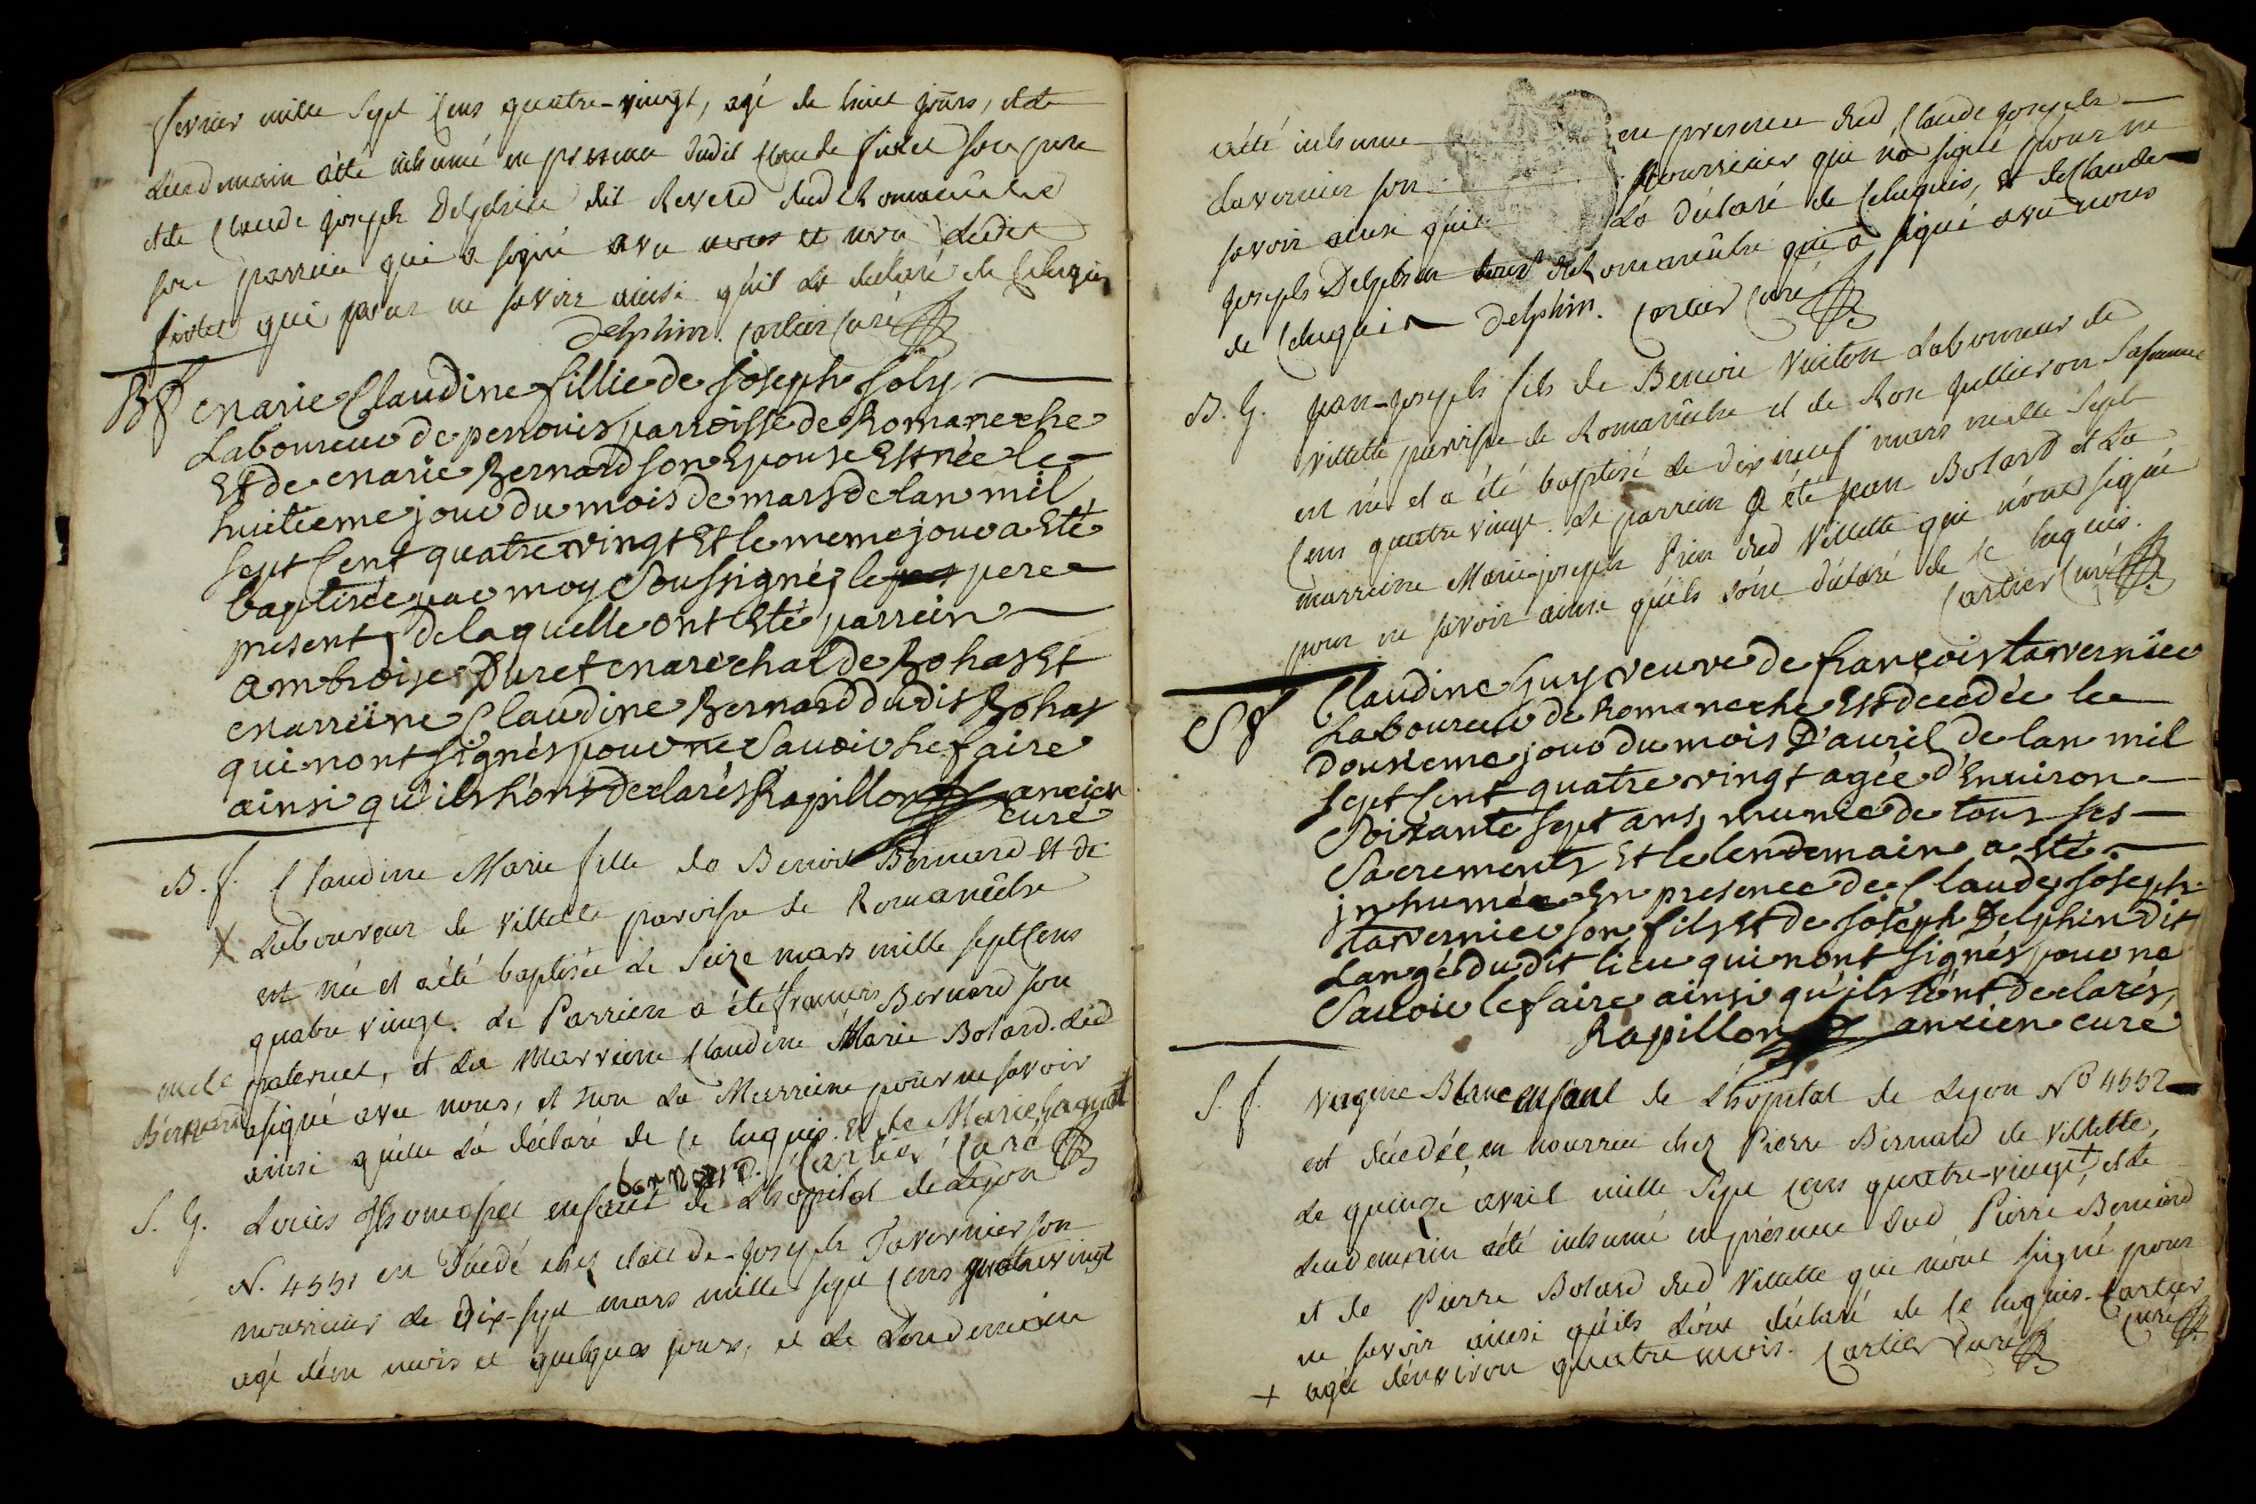 fevrier mille Sept Cens quatre-vingt, agé de huit jours, et le
Lendemain a été inhumé en presence dudit Claude firtet son pere
et de Claude joseph Delphin dit Reverd dud Romanêche
son parrein qui a signé avec nous et non Ledit
firtet qui pour ne savoir ainsi qu'il La declaré de Ce Requis
Delphin. Cartier Curé
BF Marie Claudine fillie de joseph joly
Laboureur de penouis parroisse de Romaneche
Et de Marie Bernard son Epouse Est née le
huitieme jour du mois de mars de lan mil
sept Cent quatre vingt Et le meme jour a Eté
baptisée par moy Soussigné, le pere
present, de laquelle ont Eté parrein
ambroise Duret Marechal de Rohas Et
Marreine Claudine Bernard dudit Rohas
qui nont signés pour ne Sauoir le faire
ainsi qu'ils l'ont declarés Rapillon ancien
curé
B. f. Claudine Marie fille de Benoit Bernard et de
+ Laboureur de Villette paroisse de Romanêche
est née et a été baptisée Le Seize mars mille sept Cens
quatre vingt. Le Parrein a été francois Bernard son
oncle paternel, et La Marreine Claudine Marie Bolard. Led
Bernard a signé avec nous, et non La Marreine pour ne savoir
ainsi qu'elle La déclaré de Ce Requis. et de Marie
bernard. Cartier Curé
S. G. Louis Thomasset enfant de L'hopital de Lyon
N. 4551 est Décédé chez Claude-Joseph Tavernier son
nourricier Le Dix-sept mars mille sept Cens quatrevingt
agé d'un mois et quelques jours, et Le Lendemain
a été inhumé en presence dud Claude joseph
Tavernier son Nourricier qui n'a signé pour ne
savoir ainsi qu'il La déclaré de Ce Requis, et de Claude
joseph Delphin de Romanêche qui a signé avec nous
de Ce Requis Delphin. Cartier Curé
B. G. jean-joseph fils de Benoit Vuiton Laboureur de
Villette paroisse de Romanêche et de Rose Jullieron Sa femme
est né et a été baptisé Le dix neuf mars mille Sept
Cens quatre vingt. Le parrein a été jean Bolard et La
marreine Marie-joseph Prin dud Villette qui n'ont signé
pour ne savoir ainsi qu'ils l'ont déclaré de Ce Requis.
Cartier Curé
SF Claudine Guy veuve de francois tavernier
Laboureur de Romaneche Est decedée le
Dousieme jour du mois D'auril de lan mil
sept Cent quatre vingt agée d'Enuiron
Soixante sept ans, munie de tous ses
Sacrements Et le lendemain a Eté
jnhumée En presence de Claude joseph
tavernier son fils et de joseph Delphin dit
Langé dudit lieu qui nont signés pour ne
Sauoir le faire ainsi qu'ils l'ont declarés,
Rapillon ancien curé
S. f. Virginie Blanc enfant de L'hopital de Lyon N° 4552
est décedée en nourrice chez Pierre Bernard de Villette,
Le quinze avril mille Sept Cens quatre-vingt +, et Le
Lendemain a été inhumé en présence dud Pierre Bernard
et de Pierre Bolard dud Villette qui n'ont signé pour
ne savoir ainsi qu'ils L'ont déclaré de Ce Requis. Cartier
Curé
+ agée d'environ quatre mois. Cartier Curé